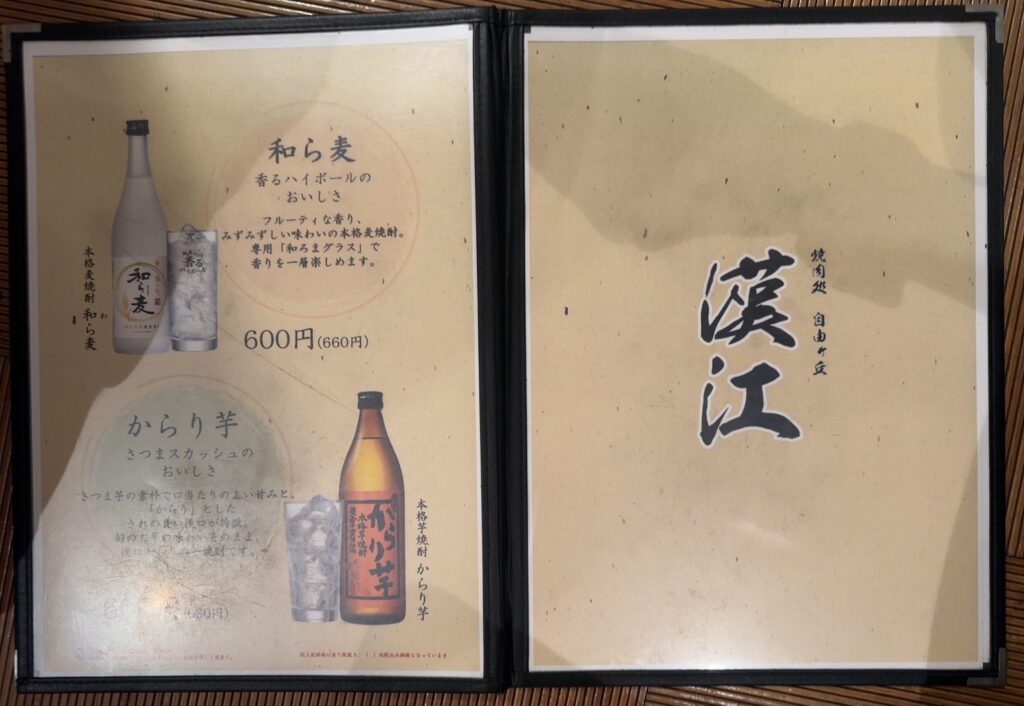 和ら麦
香るハイボールの
おいしさ
フルーティな香り、
みずみずしい味わいの本格麦焼酎。
専用「和ろまグラス」で
香りを一層楽しめます。
600円(660円)
本格麦焼酎 和ら麦
わ
香る
ハイボール
和ら麦
からり芋
さつまスカッシュの
おいしさ
さつま芋の素朴で口当たりのよい甘みと、
「からり」とした
きれの良い後口が特徴。
からり芋
本格芋焼酎
本格芋焼酎 からり芋
※上記価格は全て税抜き、( )内税込み価格となっています
焼肉処 自由ヶ丘
漢江